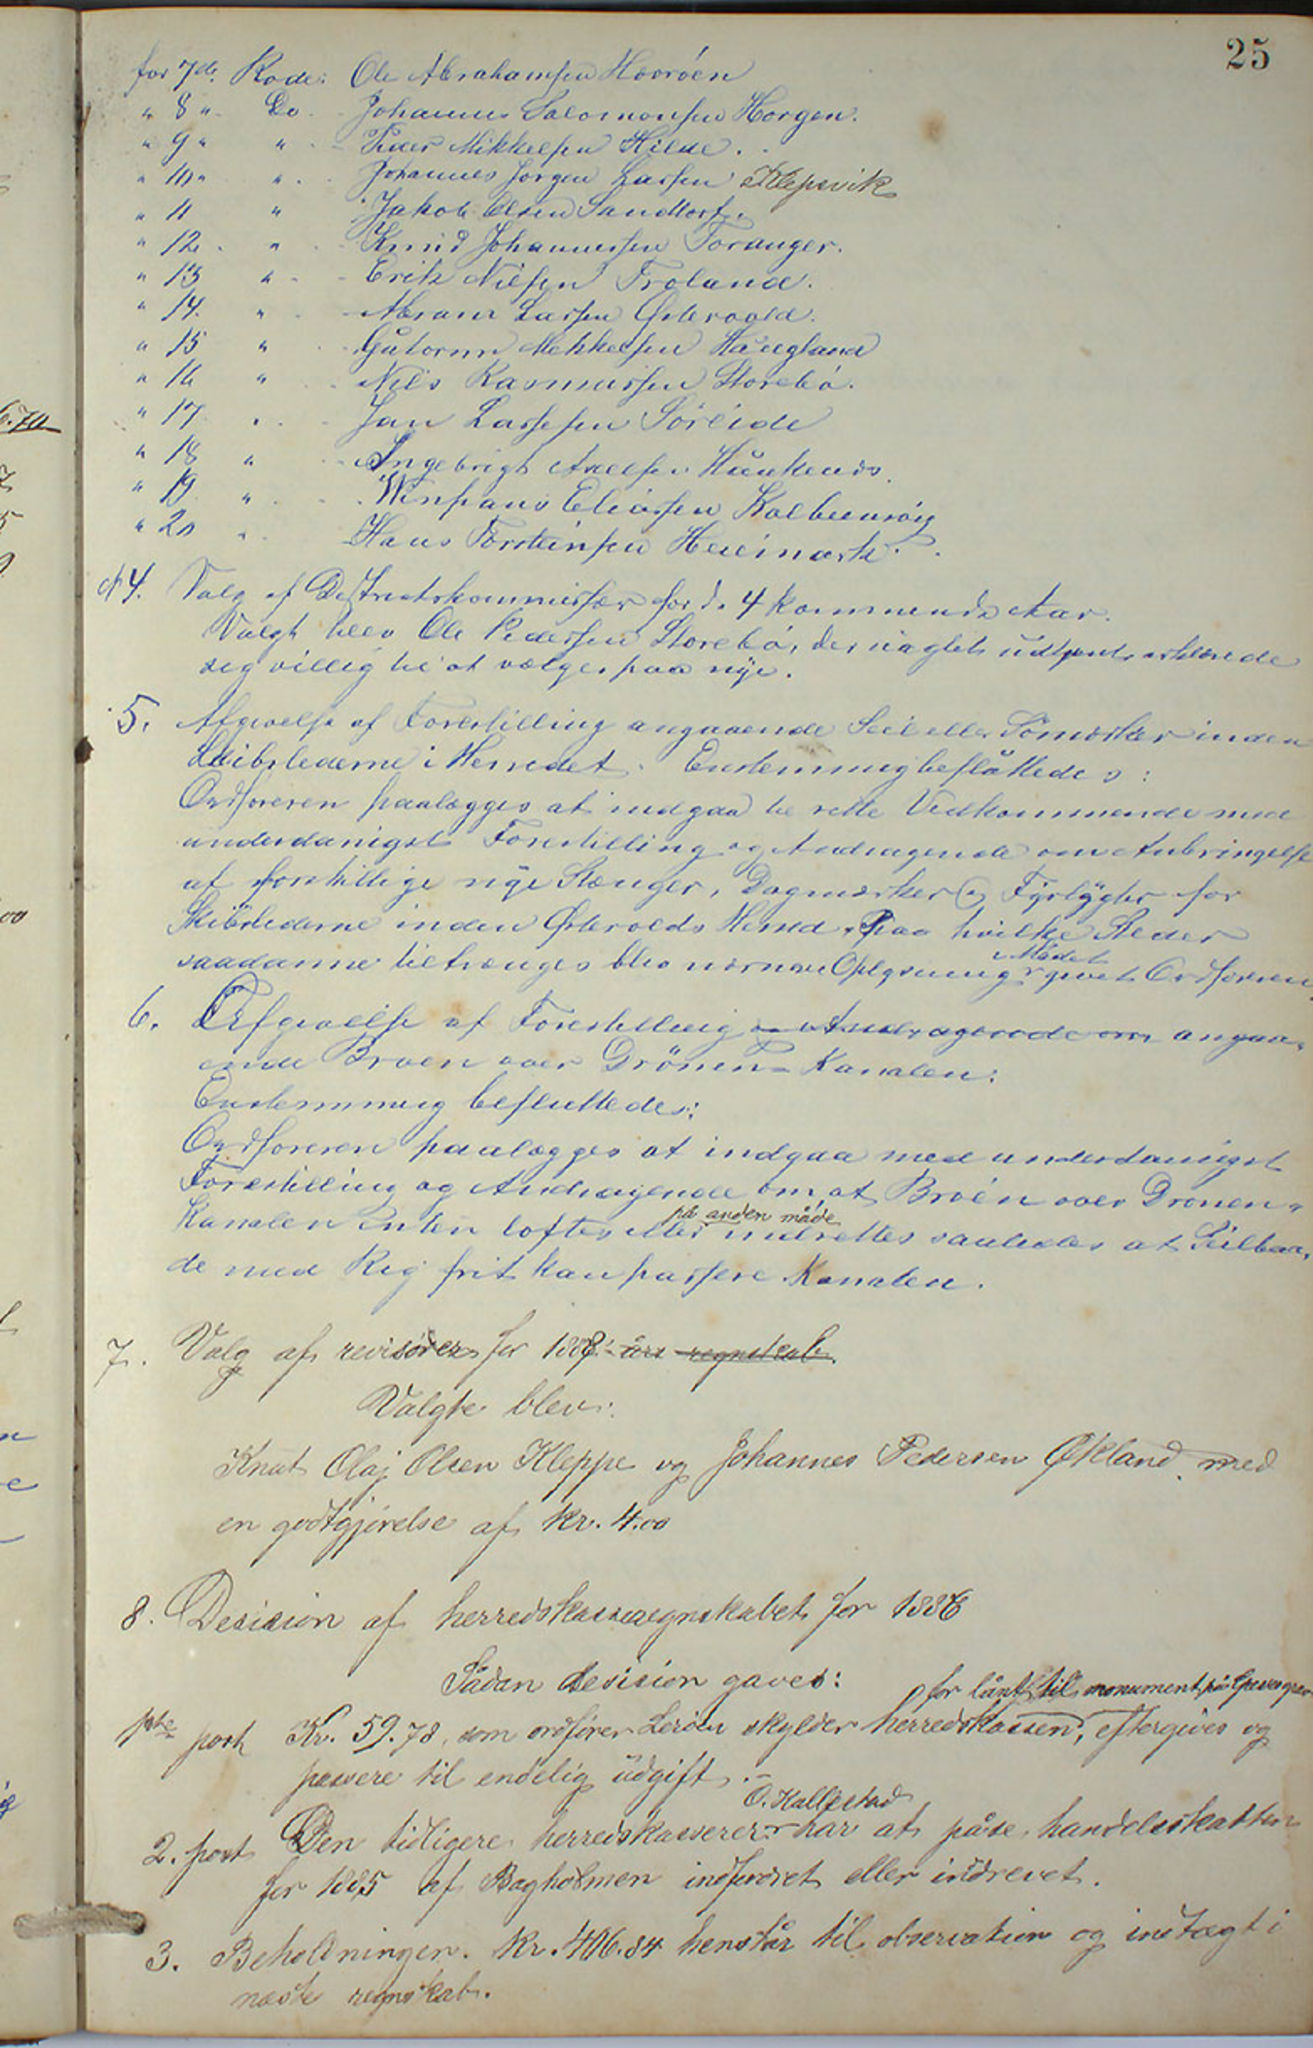 25
for 7de Rode: Ole Abrahamsen Hevrøen
" 8 " Do Johannes Salomonsen Horgen.
" 9 " " Peder Mikkelsen Hilde.
" 10 " " Johannes Jørgen Larsen Klepsvik
" 11 " Jakob Olsen Sandtorf.
" 12 " Knud Johannessen Foranger.
" 13 " Erik Nilsen Froland.
" 14. " Abram Larsen Østervold.
" 15 " Gutorm Mikkelsen Haugland
" 16 " Nils Rasmussen Storebø.
" 17 " Jan Lassesen Søreide
" 18 " Ingebrigt Axelsen Haukenæs.
" 19 " Eliassen Kolbeensøy
" 20 " Hans Torsteinsen Heiemark.
4. Valg af Distriktskommissær for de 4 kommende Aar.
Valgt blev Ole Pedersen Storebø, der uagtet udtjent erklærede
sig villig til at vælges paa nye.
5. Afgivelse af Forestilling angaaende Seil eller Sømærker inden
Skibslederne i Herredet. Enstemmig besluttedes:
Ordføreren paalægges at indgaa til rette Vedkommende med
underdanigst Forestilling og Andragende om Anbringelse
af forskillige nye Stænger, Dagmærker og Fyrlygter for
Skibslederne inden Østervolds Herred. Paa hvilke Steder
saadanne tiltrænges blev nærmere Oplysning i Mødet givet Ordføreren.
6. Afgivelse af Forestilling og Andragende om angaa-
ende Broen over Drönen-Kanalen:
Enstemmig besluttedes:
Ordføreren paalægges at indgaa med underdanigst
Forestilling og Andragende om, at Broen over Drønen-
Kanalen enten løftes eller på anden måde indrettes saaledes at Seilbaa-
de med Rig frit kan passere Kanalen.
7. Valg af revisorer for 1888 års regnskab.
Valgte blev:
Knut Olaj Olsen Kleppe og Johannes Pedersen Økland med
en godtgjørelse af kr. 4.00
8. Desision af herredskasseregnskabet for 1886
Sådan desision gaves:
1ste post Kr. 59.78, som ordfører Lerøen skylder herredskassen, for lånt til monument på eftergives og
passere til endelig udgift.-
2. post Den tidligere herredskasserer O. Hallestad har at påse handelsskatten
for 1885 af Bagholmen indfordret eller inddrevet.
3. Beholdningen kr. 406.84 henstår til observation og indtægt i
næste regnskab.